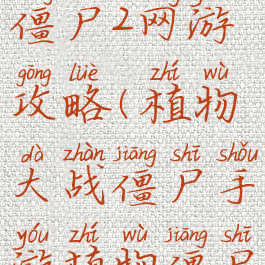 僵尸2网游
gōng lüè zhí wù
攻略(植物
dà zhàn jiāng shī shǒu
大战僵尸手
yóu zhí wù jiāng shī
游植物僵尸